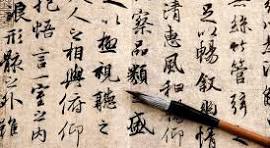 絲竹管弦
足以暢叙幽情
清惠風和暢仰
察品類盛
以極視聽之
人之相與俯仰
抱悟言一室之内
浪形骸之外雖